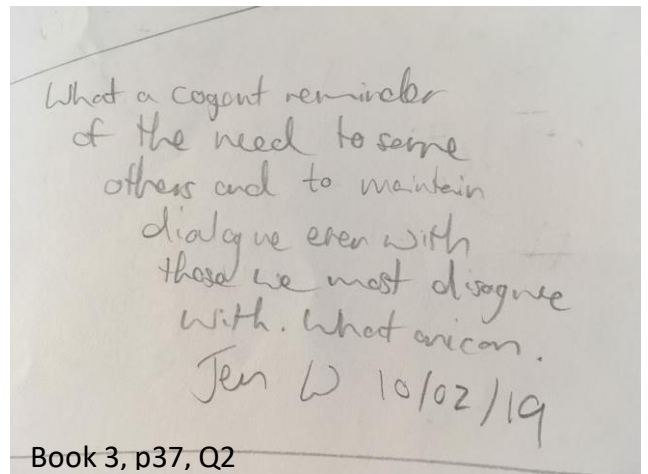 What a cogent reminder
of the need to serve
others and to maintain
dialogue even with
those we most disagree
with. What an icon.
Jen W 10/02/19
Book 3, p37, Q2